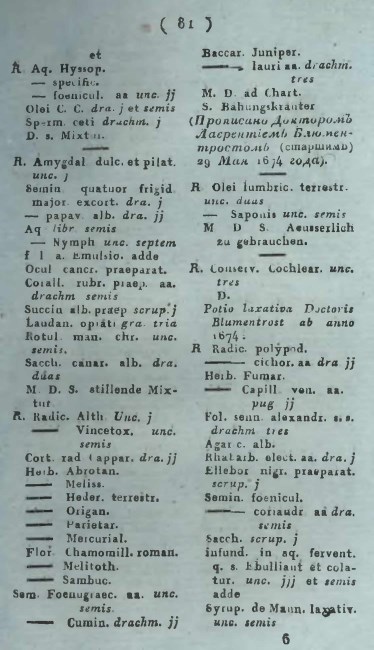 ( 81 )
et
R. Aq. Hyssop.
— specific.
— foenicul. aa unc. jj
Olei C. C. dra. j et semis
Sperm. ceti drachm. j
D. s. Mixtur.
R. Amygdal dulc. et pilat.
unc. j
Semin quatuor frigid
major. excort. dra. j
— papav. alb. dra. jj
Aq libr semis
— Nymph unc. septem
f l a. Emulsio. adde
Ocul cancr. praeparat.
Corall. rubr. praep. aa.
drachm semis
Succin alb. praep scrup. j
Laudan. opiati gra. tria
Rotul man. chr. unc.
semis.
Sacch. canar. alb. dra.
duas
M. D. S. stillende Mix-
tur
R. Radic. Alth. Unc. j
— Vincetox. unc.
semis
Cort. rad Cappar. dra. jj
Herb. Abrotan.
— Meliss.
— Heder. terrestr.
— Origan.
— Parietar.
— Mercurial.
Flor Chamomill. roman.
— Melitoth.
— Sambuc.
Sem. Foenugraec. aa. unc.
semis.
— Cumin. drachm. jj
Baccar. Juniper.
— lauri aa. drachm.
tres
M. D ad Chart.
S. Bahungskräuter
(Прописано Докторомъ
Лаврентіемъ Блюмен-
тростомъ (старшимъ)
29 Маи 1674 года).
R Olei lumbric. terrestr.
unc. duas
— Saponis unc. semis
M D S Aeusserlich
zu gebrauchen.
R. Conserv. Cochlear. unc.
tres
D.
Potio laxativa Doctoris
Blumentrost ab anno
1674.
R Radic. polypod.
— cichor. aa dra jj
Herb. Fumar.
— Capill ven. aa.
pug jj
Fol. senn. alexandr. s. s.
drachm tres
Agaric. alb.
Rhabarb. elect. aa. dra. j
Ellebor nigr. praeparat.
scrup. j
Semin. foenicul.
— coriandr aa dra.
semis
Sacch. scrup. j
infund. in aq. fervent.
q. s. Ebulliant et cola-
tur. unc. jjj et semis
adde
Syrup. de Mann. laxativ.
unc. semis
6